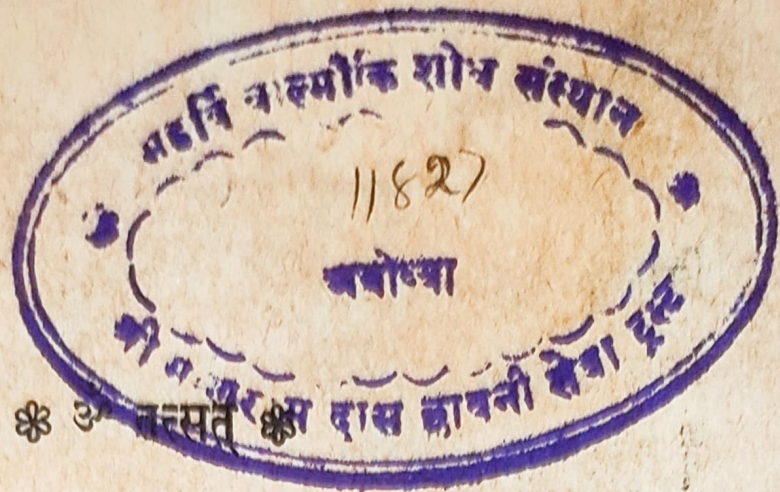 महर्षि वाल्मीकि शोध संस्थान
11827
अयोध्या
श्री दास छावनी सेवा ट्रस्ट
❃ ॐ तत्सत् ❃